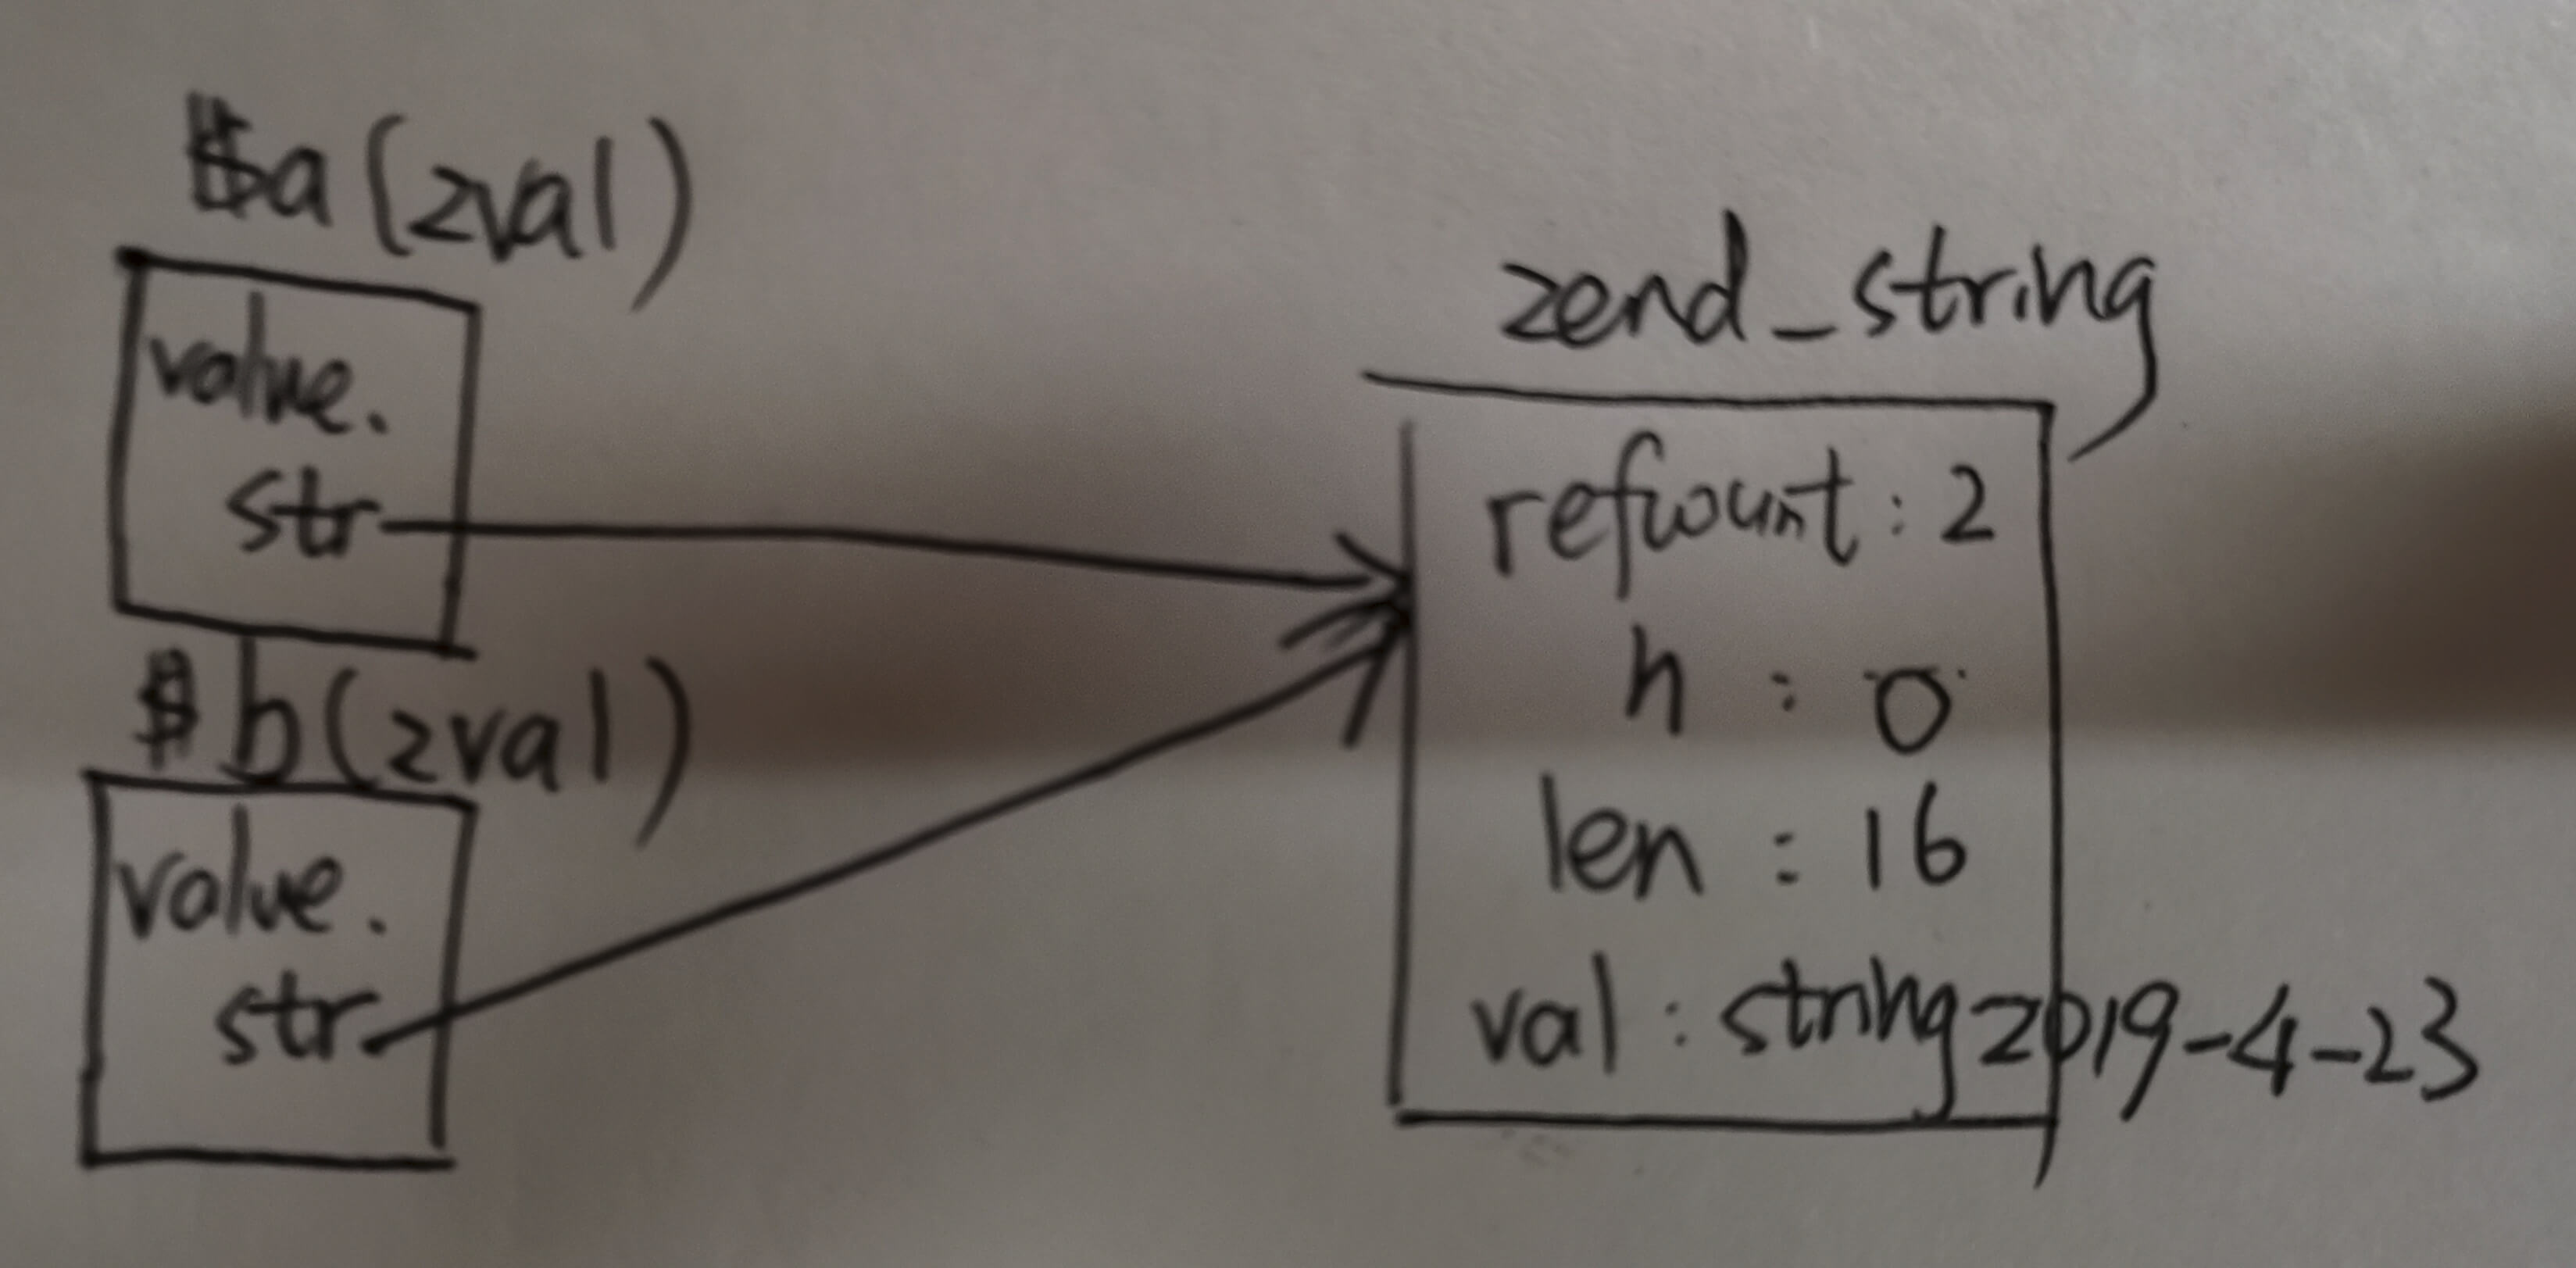 $a (zval)
value.
str
$b (zval)
value.
str
zend_string
refcount : 2
h : 0
len : 16
val : string2019-4-23